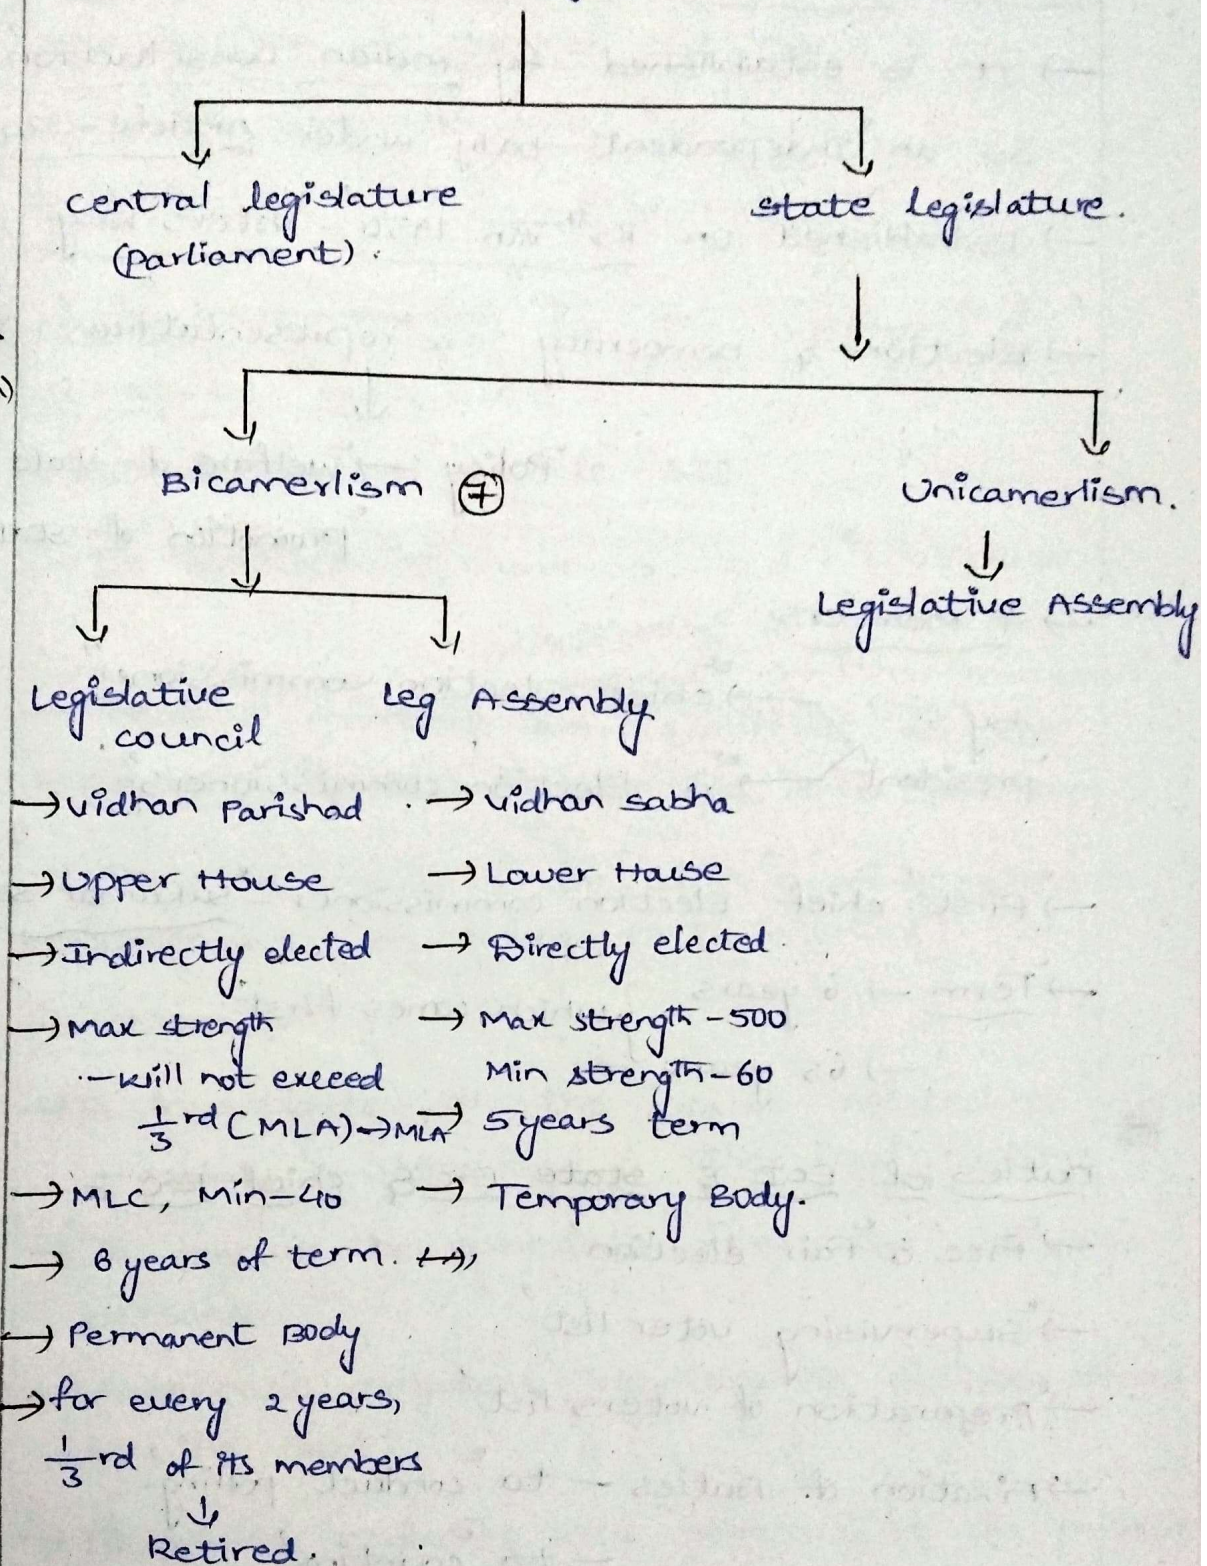 central legislature
(Parliament).
state legislature.
Bicamerlism 7
Unicamerlism.
Legislative Assembly
Legislative
council
Leg Assembly
→ Vidhan Parishad
→ Upper House
→ Indirectly elected
→ Max strength
- will not exceed
1/3 rd (MLA) → MLA
→ MLC, Min-40
→ 6 years of term.
→ Permanent Body
→ for every 2 years,
1/3 rd of its members
↓
Retired.
→ Vidhan sabha
→ Lower House
→ Directly elected.
→ Max strength - 500
Min strength - 60
→ 5 years term
→ Temporary Body.